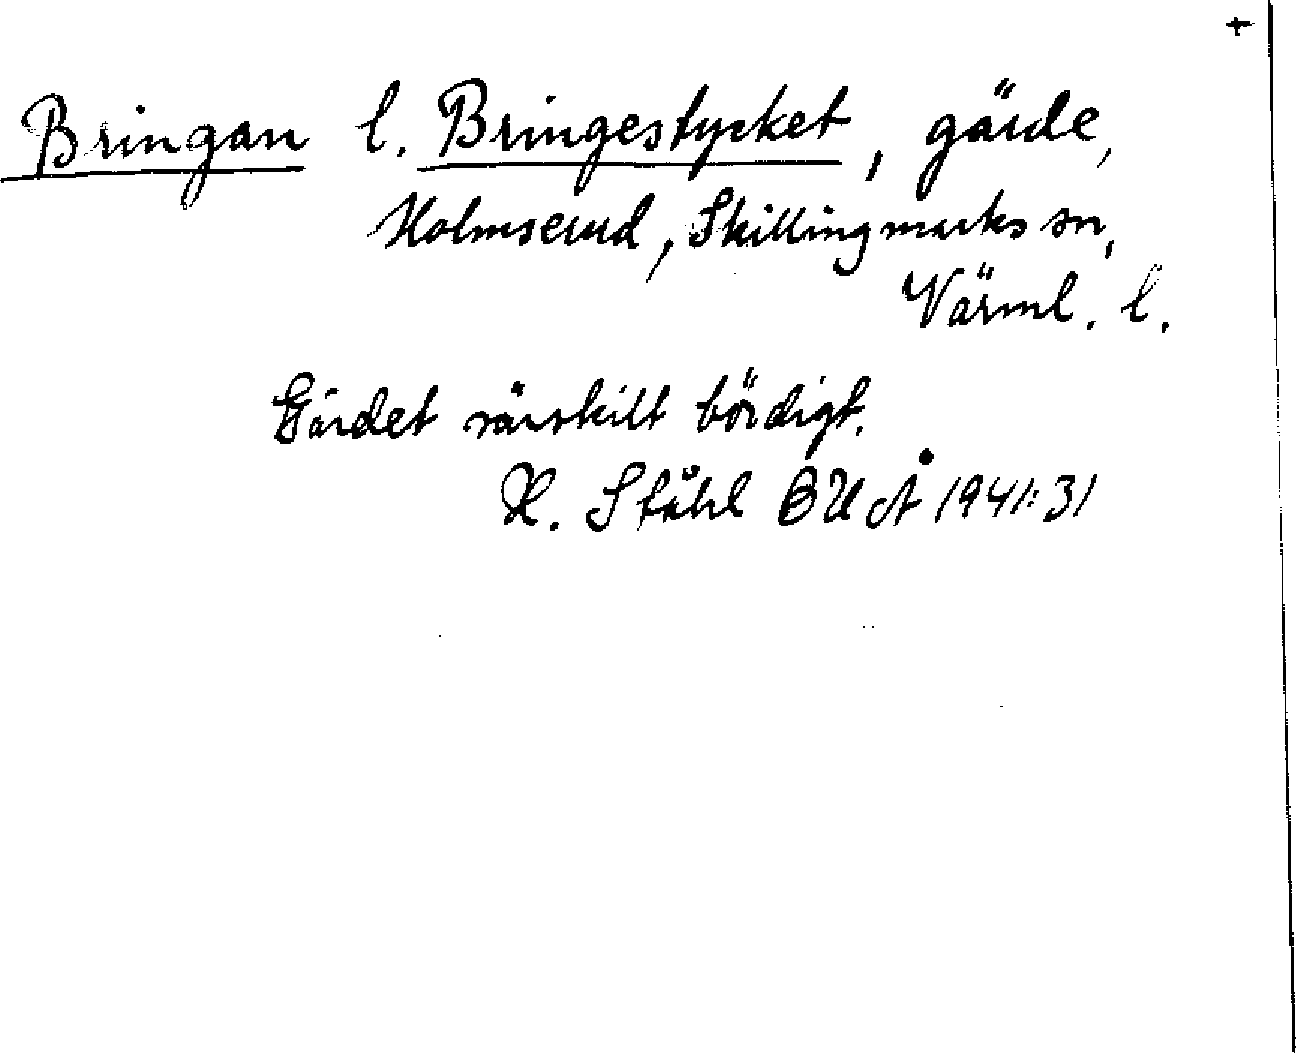 +
Bringan l. Bringestycket, gärde,
Holmserud, Skillingmarks sn,
Värml. l.
Gärdet särskilt bördigt.
H. Ståhl BUÅ 1941:31